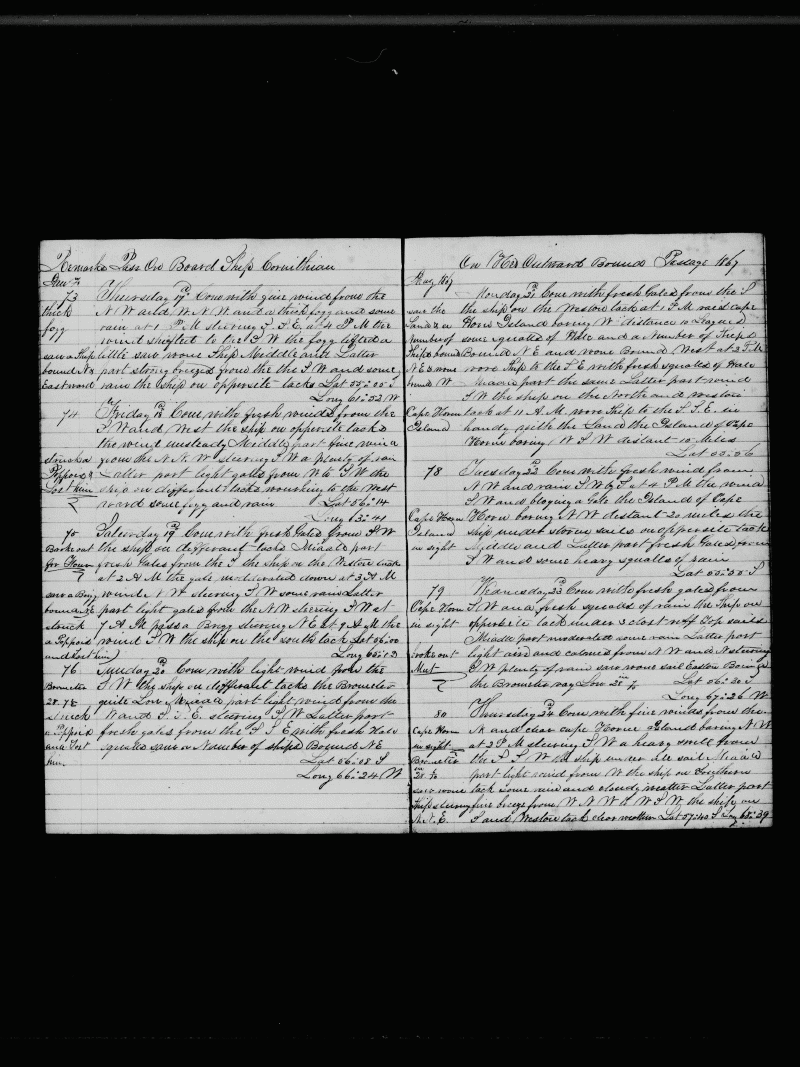 Remarks Pass On Board Ship Corinthian
73 Thursday 17th Come with give wind from the
thick N W and W N W and a thick fogg and some
fogg rain at 1 P M steering S S E at 4 P M the
wind shifted to the S W the fogg lifted a
saw a Ship little saw wone Ship Middle and Latter
bound N E part strong breezes from the S W and some
Eastward rain the ship on opposite tacks Lat 55"55 S
Long 61"52 W
74 Friday 18 Come with fresh winds from the
S W and West the ship on opposite tacks
the wind unsteady Middle part fine wind
struck a from the N N W steering S W a plenty of rain
Poppois & Latter part light gales from W to S W the
Lost him ship on different tacks working to the West
ward some fogg and rain Lat 56"14
Long 63"41
75 Saturday 19th Come with fresh Gales from S W
Brok out the ship on different tacks Middle part
for fresh Gales from the S the ship on the Western tack
at 2 A M the gale moderated down at 3 A M
saw a Brig wind W steering S W some rain Latter
bound N E part light gales from the N W steering S W at
struck 7 A M pass a Brigg steering N E at 9 A M the
a Poppois wind S W the ship on the South tack Lat 56"00
and lost him Long 65"13
76 Sunday 20 Come with light wind from the
Brometer S W the ship on different tacks the Brometer
28.78 quite Low Middle part light wind from the
struck W and S S E steering S W Latter part
a poppois fresh gales from the S S E with fresh Hale
and Lost squalls saw a Number of ships Bound N E
him Lat 56"08 S
Long 66"24 W
On Her Outward Bound Passage 1867
Monday 21 Come with fresh Gales from the S
saw the the ship on the Western tack at 1 P M raisd cape
Land & a Horn Island baring W distance 10 Leagues
Number of some squalls of Hale and a Number of Ships
Ships bound Bound N E and wone Bound West at 2
N E & wone wore Ship to the S E with fresh squalls of Hale
bound W Middle part the same Latter part wind
S W the ship on the North and western
Cape Horn tack at 11 A. M. wore Ship to the S. S. E. in
Island handy with the Land the Island of Cape
Horn baring W S W distant 10 Miles
Lat 55"56
78 Tuesday 22 Come with fresh wind from
N W and rain S W & S at 4 P M the wind
S W and bloying a Gale the Island of Cape
Cape Horn Horn baring N W distant 20 miles the
Island ship under storm sails on oppersite tack
in sight Middle and Latter part fresh Gales from
S W and some heavy squalls of rain
Lat 55"55 S
79 Wednesday 23 Come with fresh gales from
Cape Horn S W and fresh squalls of rain the Ship on
in sight oppersite tack under 3 close reeff Top sails
Middle part moderated some rain Latter part
broke out light airs and calmes from N W and N steering
Meat S W plenty of rain saw wone sail Easton Boung
the Brometer vary Low 28 Lat 56"20 S
Long 67"26 W
80 Thursday 24 Come with fine winds from the
Cape Horn N and clear cape Horne Island baring N W
in sight at 2 P M steering S W a heavy swell from
Brometer the S S W the ship under all sail Middle
28 part light wind from W the ship on Southern
saw wone tack some rain and cloudy weather Latter part
Ship steering fine breeze from W N W to W S W the ship on
N. N. E. S and Western tack clear weather Lat 57"40 S Long 68"39